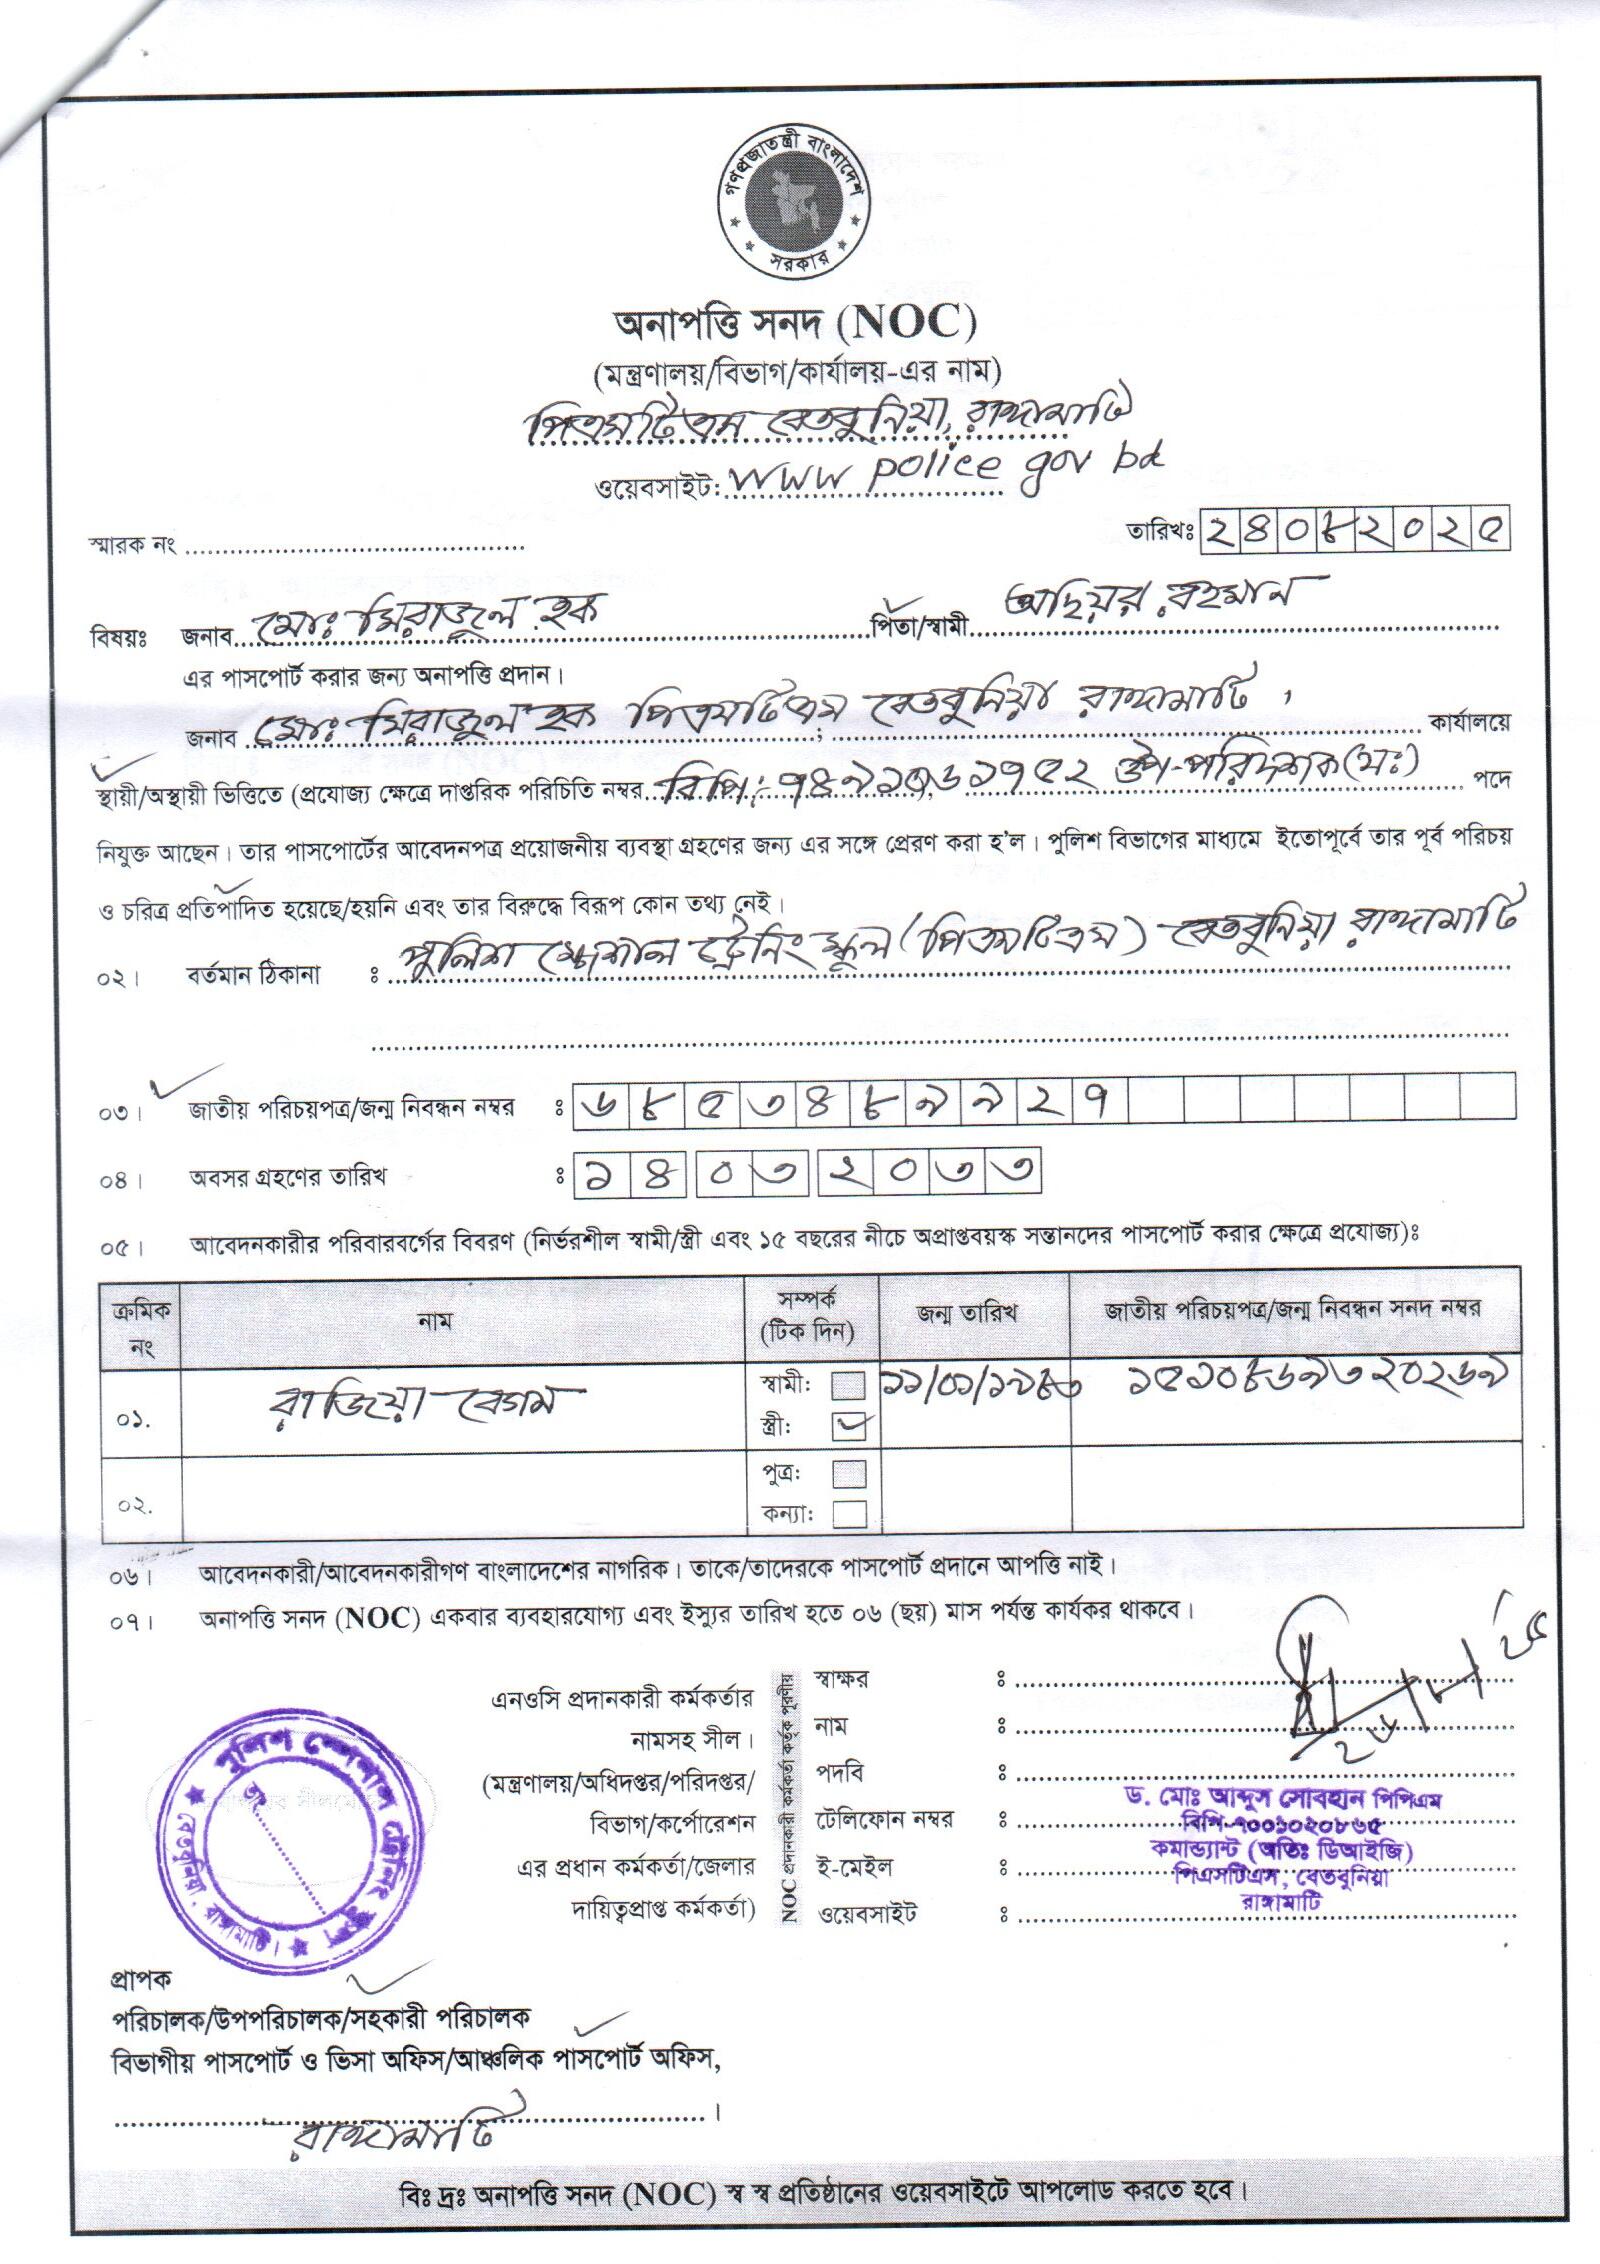 গণপ্রজাতন্ত্রী বাংলাদেশ
সরকার
অনাপত্তি সনদ (NOC)
(মন্ত্রণালয়/বিভাগ/কার্যালয়-এর নাম)
পিএসটিএস বেতবুনিয়া, রাঙ্গামাটি
ওয়েবসাইট: www police gov bd
স্মারক নং
তারিখঃ ২৪০৮২০২৫
বিষয়ঃ জনাব মোঃ মিরাজুল হক পিতা/স্বামী অছিয়র রহমান
এর পাসপোর্ট করার জন্য অনাপত্তি প্রদান।
জনাব মোঃ মিরাজুল হক পিএসটিএস বেতবুনিয়া রাঙ্গামাটি, কার্যালয়ে
স্থায়ী/অস্থায়ী ভিত্তিতে (প্রযোজ্য ক্ষেত্রে দাপ্তরিক পরিচিতি নম্বর বিপি: উপ-পরিদর্শক(সঃ) পদে
নিযুক্ত আছেন। তার পাসপোর্টের আবেদনপত্র প্রয়োজনীয় ব্যবস্থা গ্রহণের জন্য এর সঙ্গে প্রেরণ করা হ'ল। পুলিশ বিভাগের মাধ্যমে ইতোপূর্বে তার পূর্ব পরিচয়
ও চরিত্র প্রতিপাদিত হয়েছে/হয়নি এবং তার বিরুদ্ধে বিরূপ কোন তথ্য নেই।
০২। বর্তমান ঠিকানা ঃ পুলিশ স্পেশাল ট্রেনিং স্কুল (পিএসটিএস) বেতবুনিয়া রাঙ্গামাটি
০৩। জাতীয় পরিচয়পত্র/জন্ম নিবন্ধন নম্বর ঃ ৬৮৫৩৪৮৯৯২৭
০৪। অবসর গ্রহণের তারিখ ঃ ১৪ ০৩ ২০৩৩
০৫। আবেদনকারীর পরিবারবর্গের বিবরণ (নির্ভরশীল স্বামী/স্ত্রী এবং ১৫ বছরের নীচে অপ্রাপ্তবয়স্ক সন্তানদের পাসপোর্ট করার ক্ষেত্রে প্রযোজ্য)ঃ
ক্রমিক নং নাম সম্পর্ক (টিক দিন) জন্ম তারিখ জাতীয় পরিচয়পত্র/জন্ম নিবন্ধন সনদ নম্বর
০১. রাজিয়া বেগম স্বামী: ১৫১০৮৬৯৩২০২৬৯
স্ত্রী:
০২. পুত্র:
কন্যা:
০৬। আবেদনকারী/আবেদনকারীগণ বাংলাদেশের নাগরিক। তাকে/তাদেরকে পাসপোর্ট প্রদানে আপত্তি নাই।
০৭। অনাপত্তি সনদ (NOC) একবার ব্যবহারযোগ্য এবং ইস্যুর তারিখ হতে ০৬ (ছয়) মাস পর্যন্ত কার্যকর থাকবে।
এনওসি প্রদানকারী কর্মকর্তার
নামসহ সীল।
(মন্ত্রণালয়/অধিদপ্তর/পরিদপ্তর/
বিভাগ/কর্পোরেশন
এর প্রধান কর্মকর্তা/জেলার
দায়িত্বপ্রাপ্ত কর্মকর্তা)
NOC প্রদানকারী কর্মকর্তা কর্তৃক পূরণীয়
স্বাক্ষর ঃ
নাম ঃ
পদবি ঃ
টেলিফোন নম্বর ঃ
ই-মেইল ঃ
ওয়েবসাইট ঃ
ড. মোঃ আব্দুস সোবহান পিপিএম
বিপি-৭০০১০২০৮৬৫
কমান্ড্যান্ট (অতিঃ ডিআইজি)
পিএসটিএস, বেতবুনিয়া
রাঙ্গামাটি
পুলিশ স্পেশাল ট্রেনিং স্কুল
বেতবুনিয়া, রাঙ্গামাটি।
প্রাপক
পরিচালক/উপপরিচালক/সহকারী পরিচালক
বিভাগীয় পাসপোর্ট ও ভিসা অফিস/আঞ্চলিক পাসপোর্ট অফিস,
রাঙ্গামাটি
বিঃ দ্রঃ অনাপত্তি সনদ (NOC) স্ব স্ব প্রতিষ্ঠানের ওয়েবসাইটে আপলোড করতে হবে।